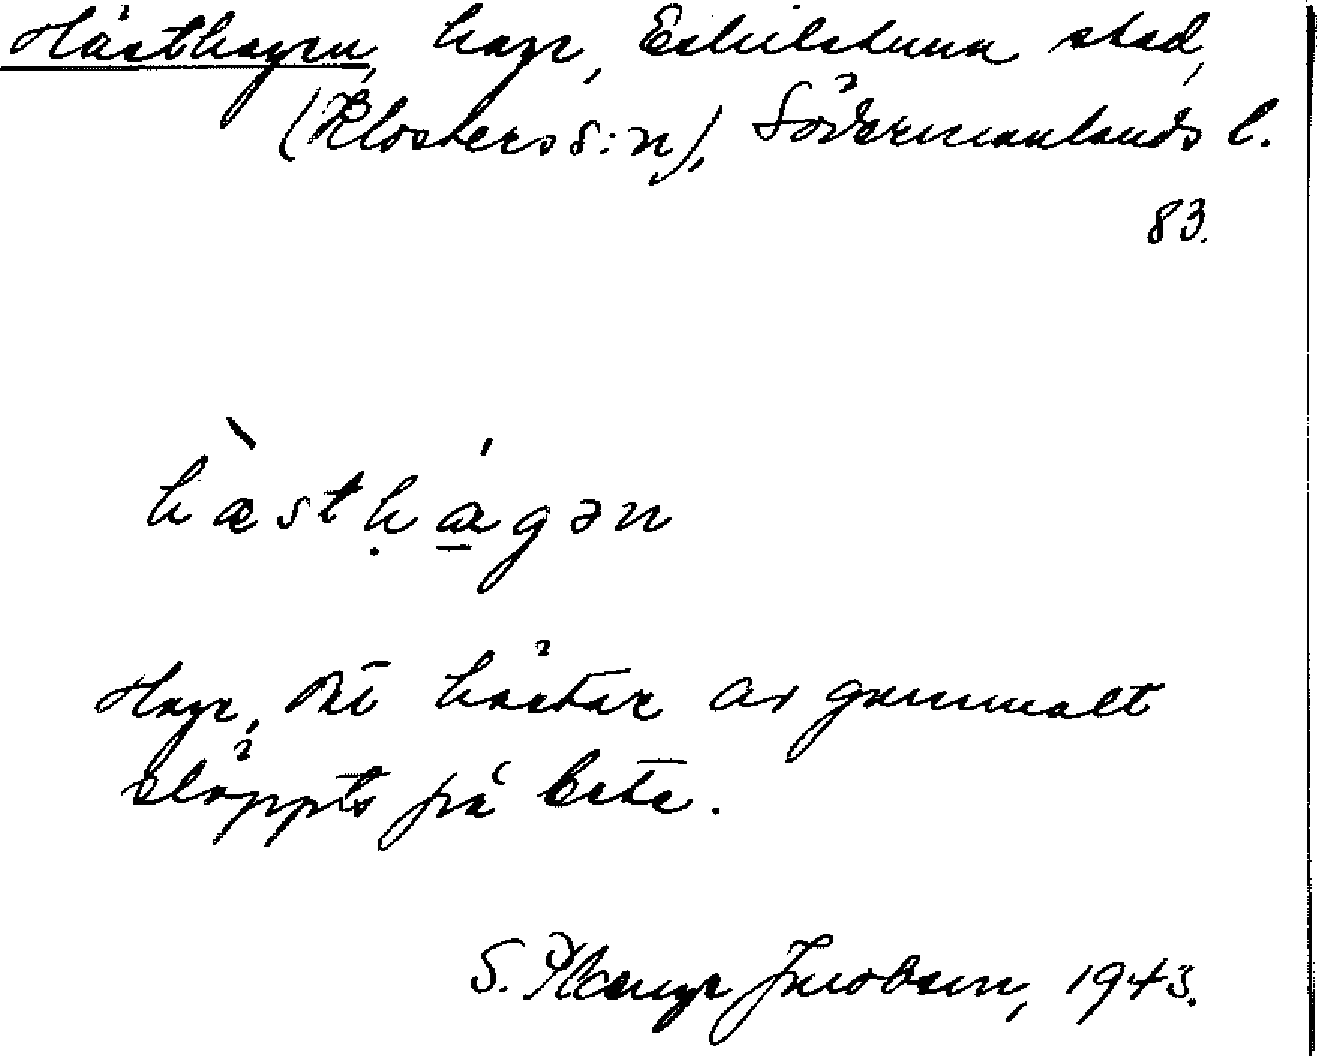 Hästhagen, hage, Eskilstuna stad,
(Klosters s:n), Södermanlands l.
83.
hæ̀stḥá̲gən
Hage, dit hästar av gammalt
släppts på bete.
S. Jacobson, 1943.